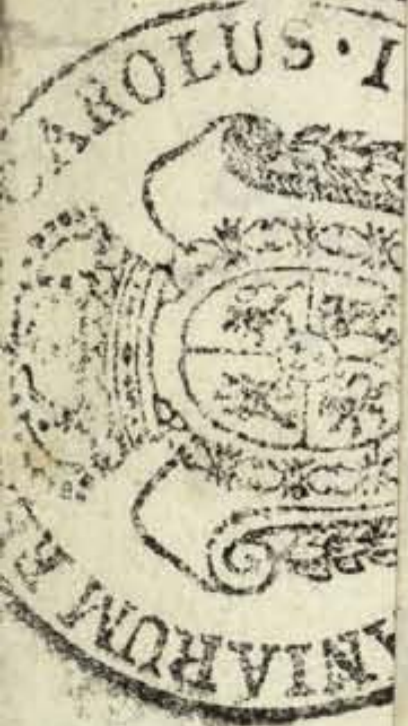 CAROLUS · I
ANIARUM R